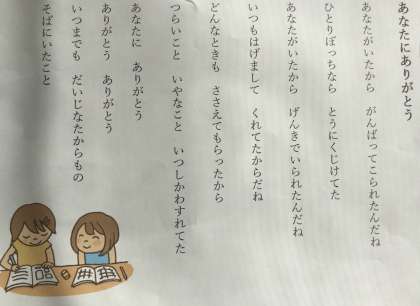 あなたにありがとう
あなたがいたから　がんばってこられたんだね
ひとりぼっちなら　とうにくじけてた
あなたがいたから　げんきでいられたんだね
いつもはげまして　くれてたからだね
どんなときも　ささえてもらったから
つらいこと　いやなこと　いつしかわすれてた
あなたに　ありがとう
ありがとう　ありがとう
いつまでも　だいじなたからもの
そばにいたこと